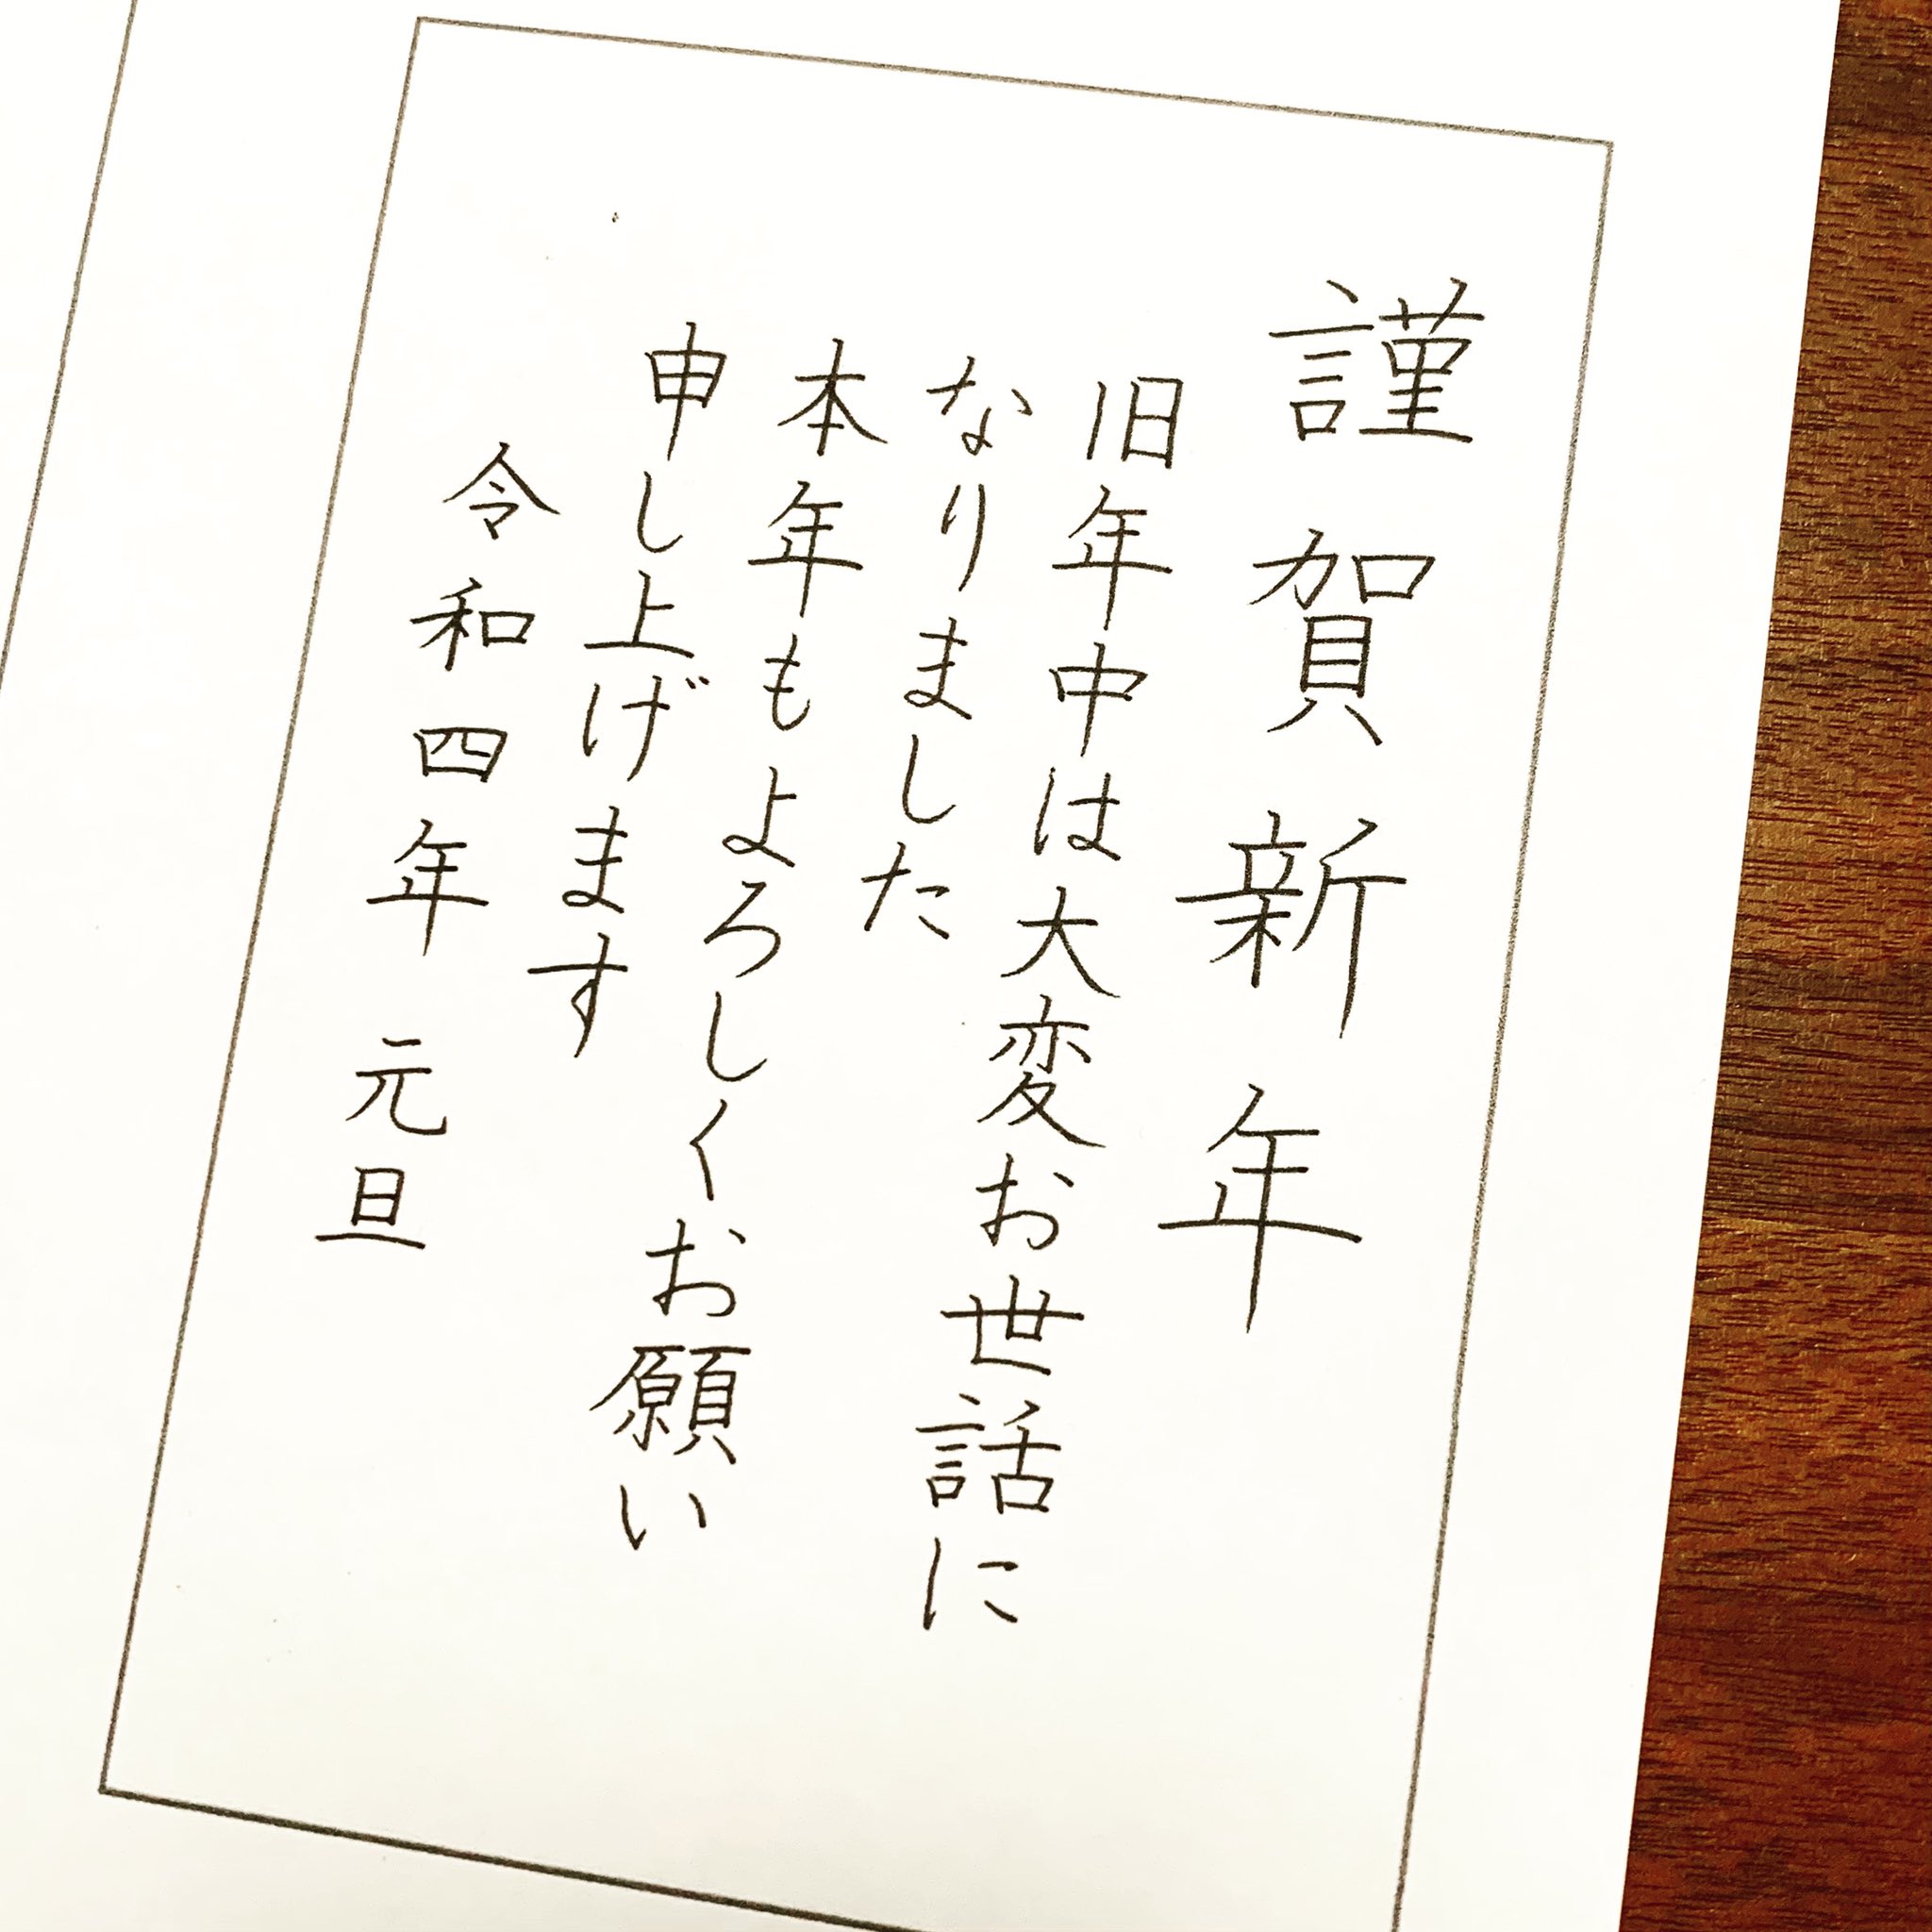 謹賀新年
旧年中は大変お世話に
なりました
本年もよろしくお願い
申し上げます
令和四年 元旦